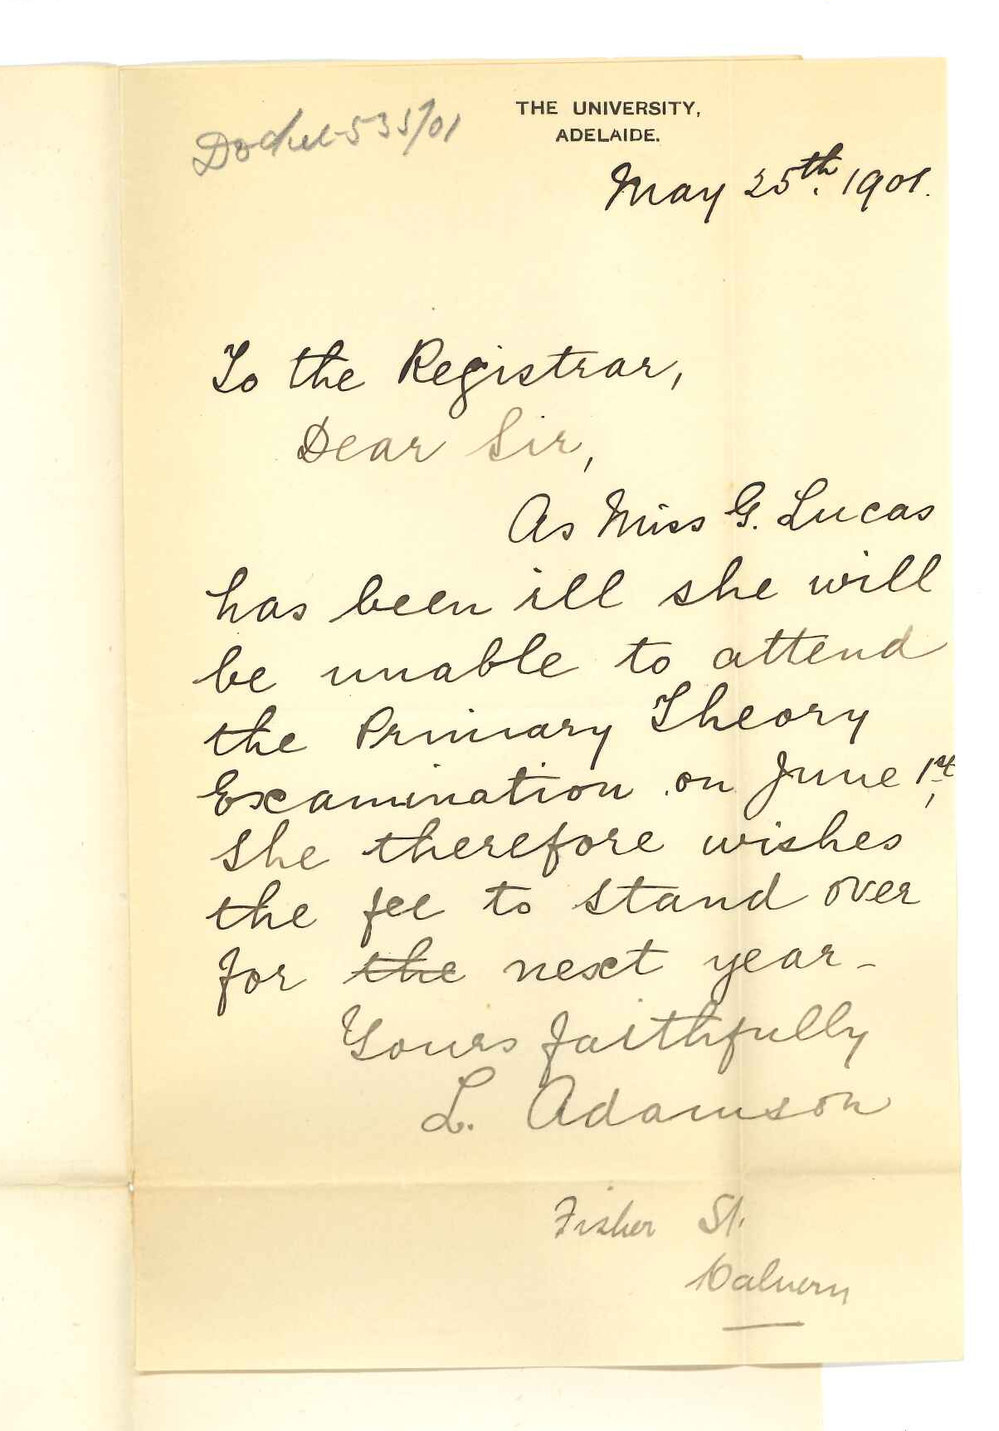 Docket 535/01
THE UNIVERSITY,
ADELAIDE.
May 25th. 1901.
To the Registrar,
Dear Sir,
As Miss G. Lucas
has been ill she will
be unable to attend
the Primary Theory
Examination on June 1st,
She therefore wishes
the fee to stand over
for the next year -
Yours faithfully
L. Adamson
Fisher St.
Malvern